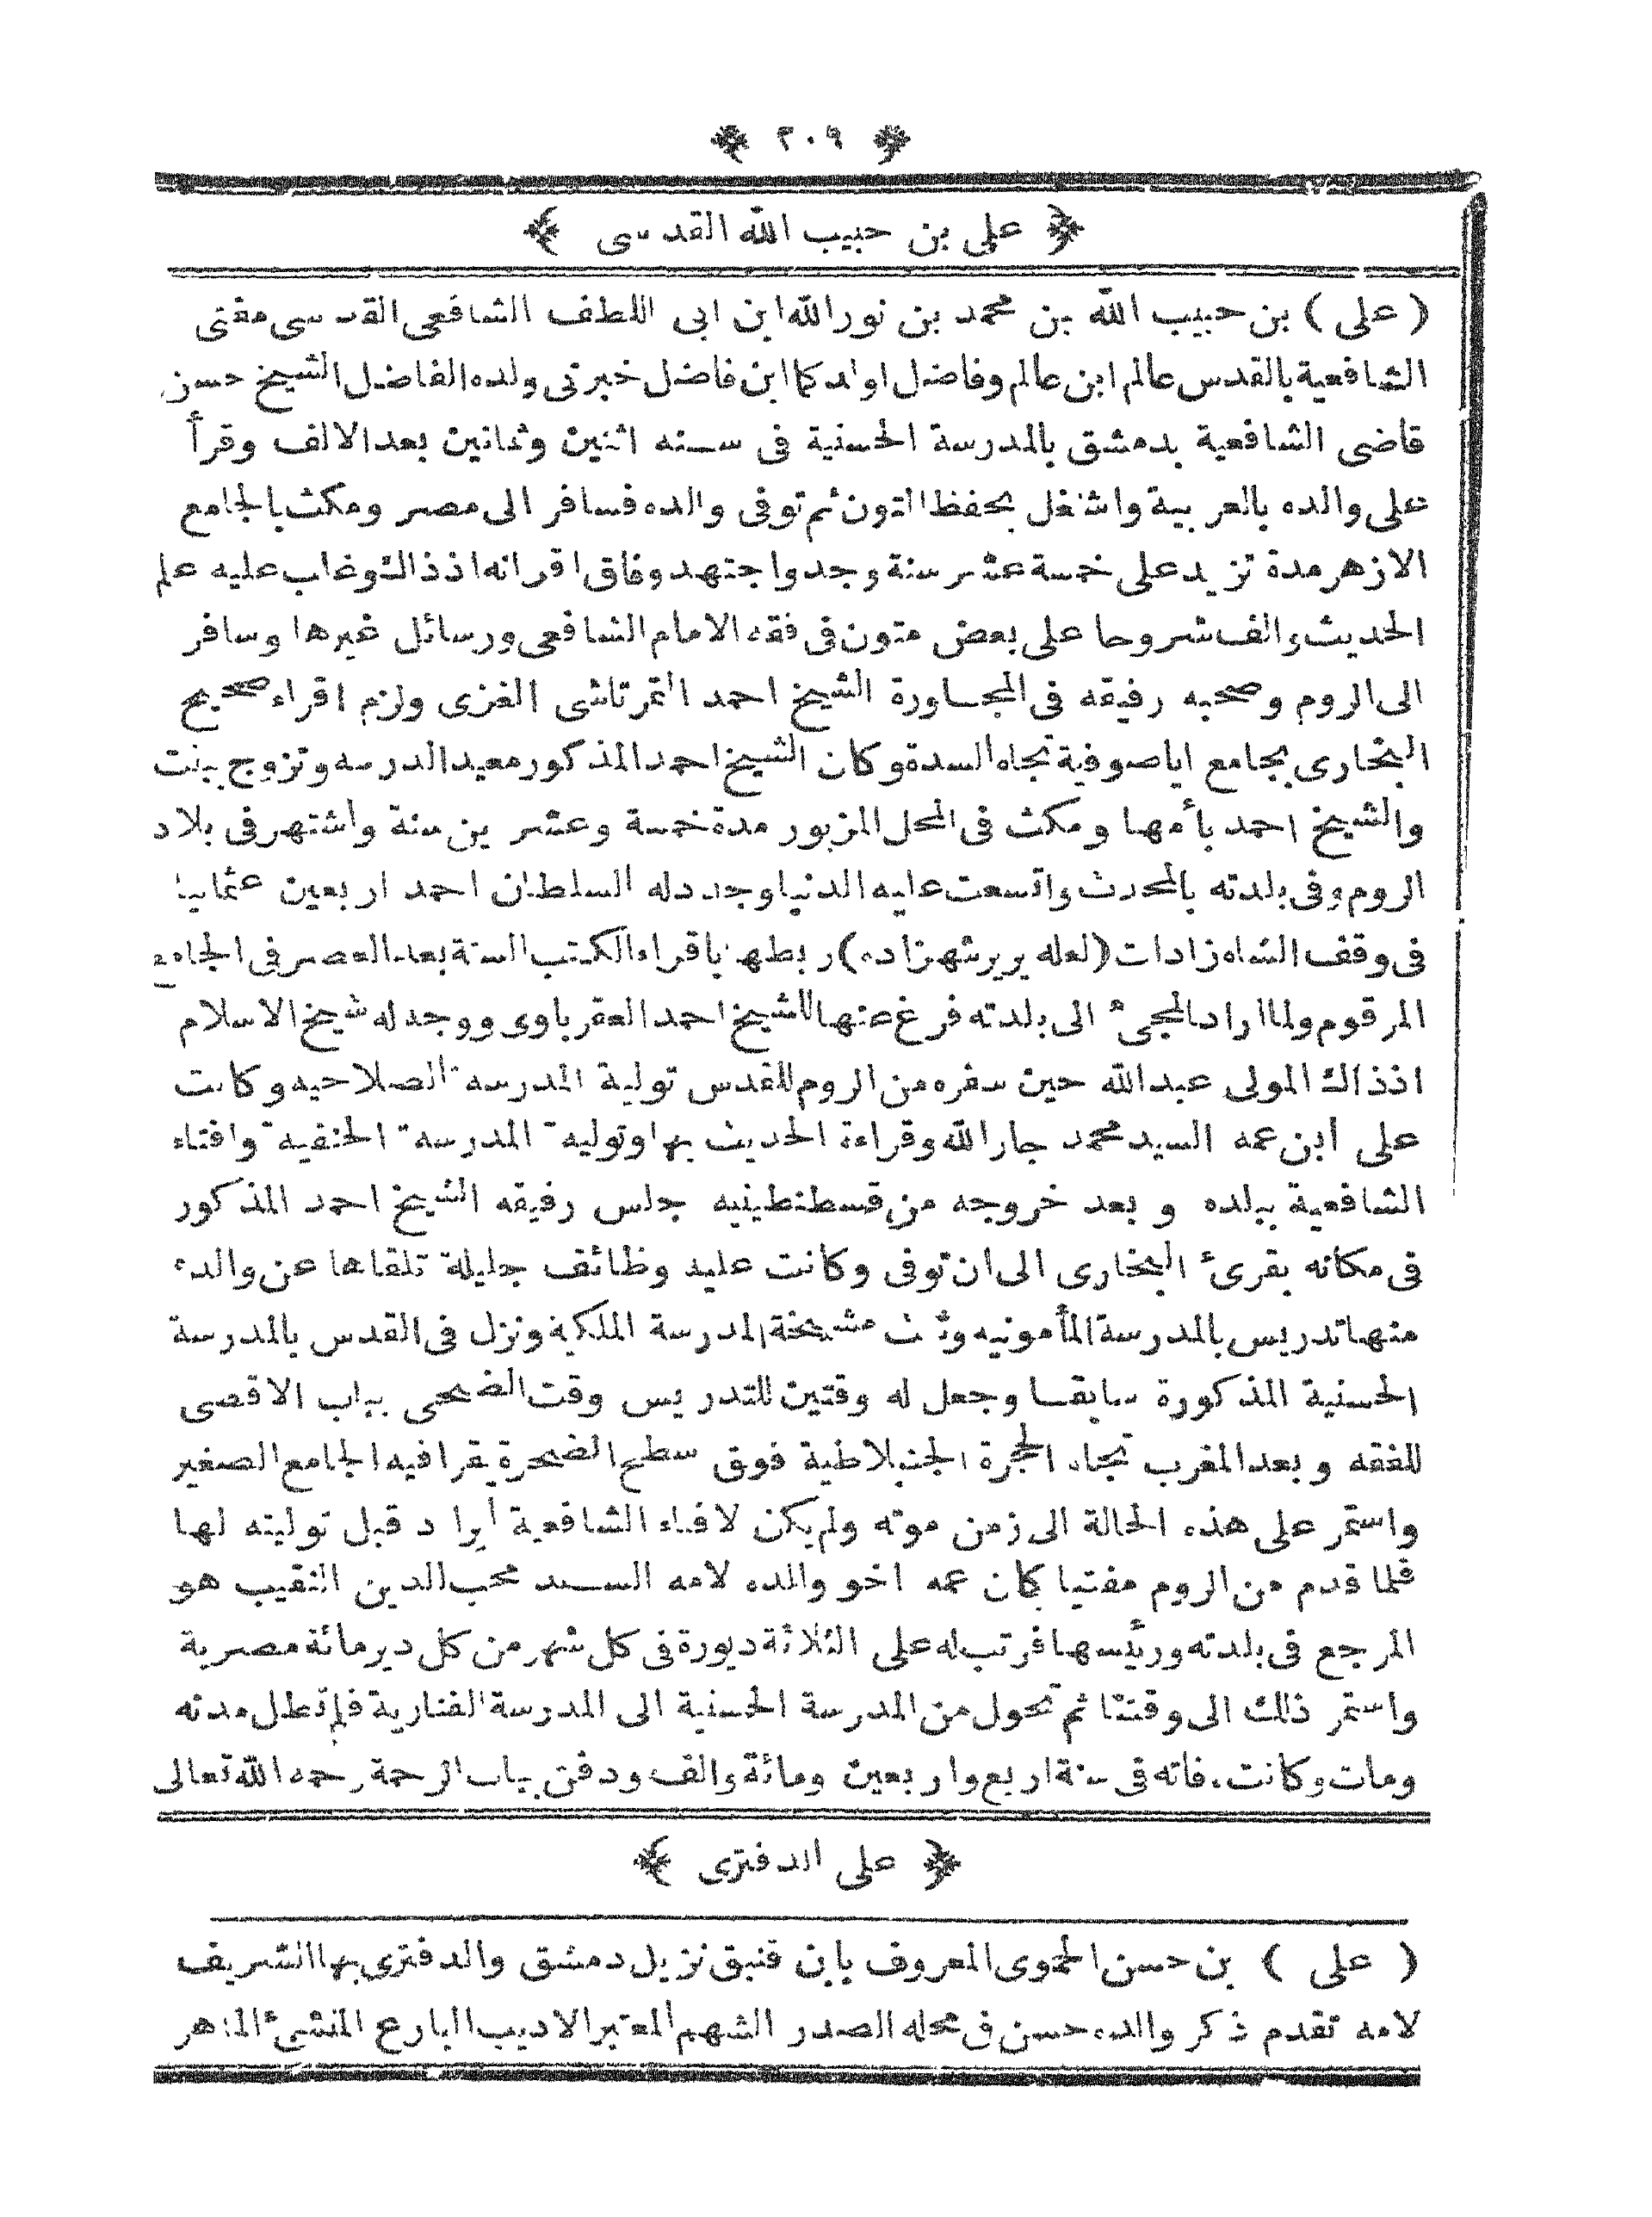 ﴿ ٢٠٩ ﴾
﴿ على بن حبيب الله القدسى ﴾
( على ) بن حبيب الله بن محمد بن نور الله ابن ابى اللطف الشافعى القدسى مفتى
الشافعية بالقدس عالم ابن عالم وفاضل اوله كما ابن فاضل خبرتى ولده الفاضل الشيخ حسن
قاضى الشافعية بدمشق بالمدرسة الحسنية فى سنه اثنين وثمانين بعد الالف وقرأ
على والده بالعربية واشتغل بحفظ المتون ثم توفى والده فسافر الى مصر ومكث بالجامع
الازهر مدة تزيد على خمسة عشر سنة وجد واجتهد وفاق اقرانه اذ ذاك وغاب عليه علم
الحديث والف شروحا على بعض متون فى فقه الامام الشافعى ورسائل غيرها وسافر
الى الروم وصحبه رفيقه فى المجاورة الشيخ احمد التمرتاشى الغزى ولزم اقراء صحيح
البخارى بجامع اياصوفية تجاه السدة وكان الشيخ احمد المذكور معيد الدرسه وتزوج ببنت
والشيخ احمد بأمها ومكث فى المحل المزبور مدة خمسة وعشرين سنة واشتهر فى بلاد
الروم وفى بلدته بالمحدث واتسعت عليه الدنيا وجدد له السلطان احمد اربعين عثمانيا
فى وقف الشاه زادات (لعله يرير شهزاده) ربطها باقراء الكتب الستة بعد العصر فى الجامع
المرقوم ولما اراد المجىء الى بلدته فرغ عنها للشيخ احمد العقرباوى ووجد له شيخ الاسلام
اذ ذاك المولى عبد الله حين سفره من الروم للقدس تولية المدرسة الصلاحيه وكانت
على ابن عمه السيد محمد جار الله وقراءة الحديث بها وتوليه المدرسه الحنفيه وافتاء
الشافعية ببلده و بعد خروجه من قسطنطينيه جلس رفيقه الشيخ احمد المذكور
فى مكانه يقرئ البخارى الى ان توفى وكانت عليه وظائف جليلة تلقاها عن والده
منها تدريس بالمدرسة المأمونيه وثلث مشيخة المدرسة الملكية ونزل فى القدس بالمدرسة
الحسنية المذكورة سابقا وجعل له وقتين للتدريس وقت الضحى بباب الاقصى
للفقه وبعد المغرب تجاه الحجرة الجنبلاطية فوق سطح الصخرة يقرا فيه الجامع الصغير
واستمر على هذه الحالة الى زمن موته ولم يكن لافتاء الشافعية ايراد قبل توليته لها
فلما قدم من الروم مفتيا كان عمه اخو والده لامه السيد محب الدين النقيب هو
المرجع فى بلدته ورئيسها فرتب له على الثلاثة ديورة فى كل شهر من كل دير مائة مصرية
واستمر ذلك الى وقتنا ثم تحول من المدرسة الحسنية الى المدرسة الفنارية فلم تطل مدته
ومات وكانت وفاته فى سنة اربع واربعين ومائة والف ودفن بباب الرحمة رحمه الله تعالى
﴿ على الدفترى ﴾
( على ) بن حسن الحموى المعروف بابن قنبق نزيل دمشق والدفترى بها الشريف
لامه تقدم ذكر والده حسن فى محله الصدر الشهم المعتبر الاديب البارع المنشئ الماهر